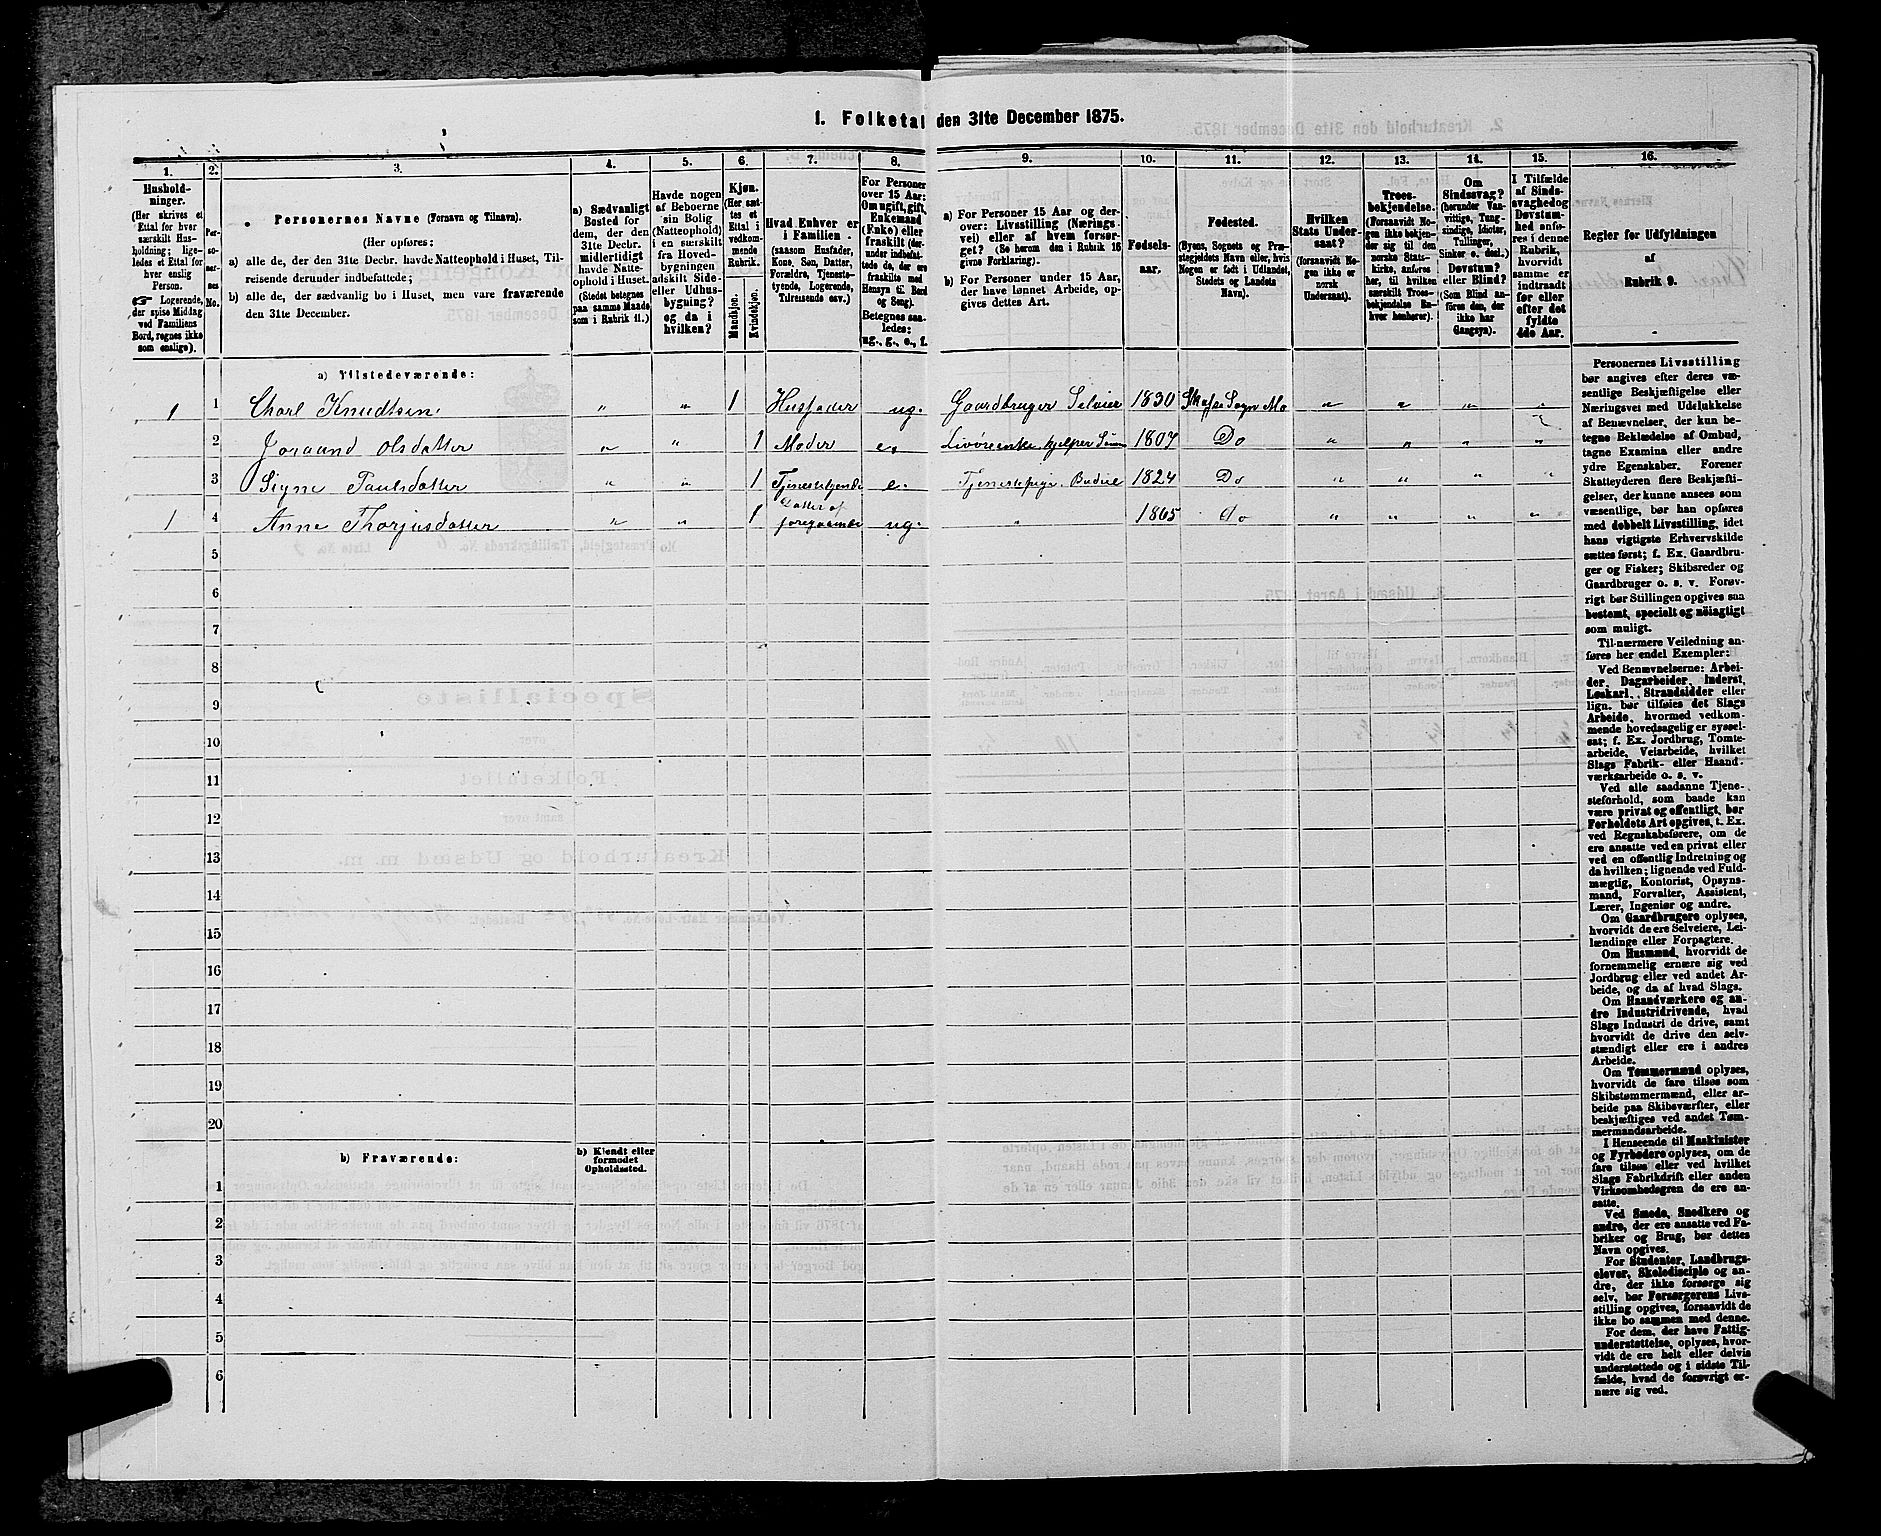 1. Folketal den 31te December 1875.
1.
2.
3.
4.
5.
6.
7.
8.
9.
10.
11.
12.
13.
14.
15.
16.
Hushold-
ninger.
(Her skrives et
Ettal for hver
særskilt Hus-
holdning; lige-
ledes et Ettal for
hver enslig
Person.
Logerende,
der spise Middag
ved Familiens
Bord, regnes ikke
som enslige).
Per-
so-
ner-
nes
No.
Personernes Navne (Fornavn og Tilnavn).
(Her opføres:
a) alle de, der den 31te Decbr. havde Natteophold i Huset, Til-
reisende derunder indbefattede;
b) alle de, der sædvanlig bo i Huset, men vare fraværende
den 31te December.
a) Sædvanligt
Bosted for
dem, der den
31te Decbr.
midlertidigt
havde Natte-
ophold i Huset.
(Stedet betegnes
paa samme Maade
som i Rubrik 11.)
Havde nogen
af Beboerne
sin Bolig
(Natteophold)
i en særskilt
fra Hoved-
bygningen
adskilt Side-
eller Udhus-
bygning?
og da i
hvilken?
Kjøn.
(Her sæt-
tes et
Ettal i
vedkom-
mende
Rubrik.
Mandkjøn.
Kvindekjøn.
Hvad Enhver er
i Familien
(saasom Husfader,
Kone, Søn, Datter,
Forældre, Tjeneste-
tyende, Logerende,
Tilreisende osv.)
For Personer
over 15 Aar:
Om ugift, gift,
Enkemand
(Enke) eller
fraskilt (der-
under indbefat-
tede de, der ere
fraskilte med
Hensyn til Bord
og Seng).
Betegnes saa-
ledes:
ug., g., e., f.
a) For Personer 15 Aar og der-
over: Livsstilling (Nærings-
vei) eller af hvem forsør-
get? (Se herom den i Rubrik 16
givne Forklaring).
b) For Personer under 15 Aar,
der have lønnet Arbeide, op-
gives dettes Art.
Fødsels-
aar.
Fødested.
(Byens, Sognets og Præ-
stegjeldets Navn eller, hvis
Nogen er født i Udlandet,
Stedets og Landets
Navn).
Hvilken
Stats Under-
saat?
(forsaavidt No-
gen ikke er
norsk
Undersaat).
Troes-
bekjendelse.
(Forsaavidt No-
gen ikke bekjen-
der sig til den
norske Stats-
kirke, anføres
her, til hvilken
særskilt Troes-
bekjendelse En-
hver henhører).
Om
Sindssvag?
(herunder Van-
vittige, Tung-
sindige, Idioter,
Tullinger,
Sinker o. desl.)
Døvstum?
eller Blind?
(Som Blind an-
føres den, der
ikke har
Gangsyn).
I Tilfælde
af Sinds-
svaghed og
Døvstum-
hed anfø-
res i denne
Rubrik,
hvorvidt
samme er
indtraadt
før eller
efter det
fyldte
4de Aar.
Regler for Udfyldningen
af
Rubrik 9.
a) Tilstedeværende:
1 1 Charl Knudtsen " " 1 Husfader ug. Gaardbruger Selveier 1830 Sogn Mo " " " "
2 Joraand Olsdatter " " 1 Moder e. 1807 Do " " " "
3 Signe Paulsdatter " " 1 Tjenestetyende e. Tjenestepige Budeie 1824 Do " " " "
1 4 Anne Thorjusdatter " " 1 Datter af foregaaende ug. " 1865 Do " " " "
5
6
7
8
9
10
11
12
13
14
15
16
17
18
19
20
b) Fraværende:
b) Kjendt eller
formodet
Opholdssted.
1
2
3
4
5
6
Personernes Livsstilling
bør angives efter deres væ-
sentlige Beskjæftigelse eller
Næringsvei med Udelukkelse
af Benævnelser, der kun be-
tegne Beklædelse af Ombud,
tagne Examina eller andre
ydre Egenskaber. Forener
Skatteyderen flere Beskjæfti-
gelser, der kunne ansees som
væsentlige, bør han opføres
med dobbelt Livsstilling, idet
hans vigtigste Erhvervskilde
sættes først; f. Ex. Gaardbru-
ger og Fisker; Skibsreder og
Gaardbruger o. s. v. Forøv-
rigt bør Stillingen opgives saa
bestemt, specielt og nøiagtigt
som muligt.
Til nærmere Veiledning an-
føres her endel Exempler:
Ved Benævnelserne: Arbei-
der, Dagarbeider, Inderst,
Løskarl, Strandsidder eller
lign. bør tilføies det Slags
Arbeide, hvormed vedkom-
mende hovedsagelig er syssel-
sat; f. Ex. Jordbrug, Tomte-
arbeide, Veiarbeide, hvilket
Slags Fabrik- eller Haand-
værksarbeide o. s. v.
Ved alle saadanne Tjene-
steforhold, som baade kan
være privat og offentligt, bør
Forholdets Art opgives, t. Ex.
ved Regnskabsførere, om de
ere ansatte ved en privat eller
ved en offentlig Indretning og
da hvilken; lignende ved Fuld-
mægtig, Kontorist, Opsyns-
mand, Forvalter, Assistent,
Lærer, Ingeniør og andre.
Om Gaardbrugere oplyses,
hvorvidt de ere Selveiere, Lei-
lændinge eller Forpagtere.
Om Husmænd, hvorvidt de
fornemmelig ernære sig ved
Jordbrug eller ved andet Ar-
beide, og da af hvad Slags.
Om Haandværkere og an-
dre Industridrivende, hvad
Slags Industri de drive, samt
hvorvidt de drive den selv-
stændigt eller ere i andres
Arbeide.
Om Tømmermænd oplyses,
hvorvidt de fare tilsøs som
Skibstømmermænd, eller ar-
beide paa Skibsværfter, eller
beskjæftiges ved andet Tøm-
mermandsarbeide.
I Henseende til Maskinister
og Fyrbødere oplyses, om de
fare tilsøs eller ved hvilket
Slags Fabrikdrift eller anden
Virksombedsgren de ere an-
satte.
Ved Smede, Snedkere og
andre, der ere ansatte ved Fa-
briker og Brug, bør dettes
Navn opgives.
For Studenter, Landbrugs-
elever, Skoledisciple og an-
dre, der ikke forsørge sig
selv, bør Forsørgerens Livs-
stilling opgives, forsaavidt de
ikke bo sammen med denne.
For dem, der have Fattig-
understøttelse, oplyses, hvor-
vidt de ere helt eller delvis
understøttede og i sidste Til-
fælde, hvad de forøvrigt er-
nære sig ved.